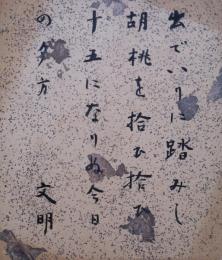 出でいりに踏みし
胡桃を拾ひ拾ひ
十五になりぬ今日
の夕方 文明